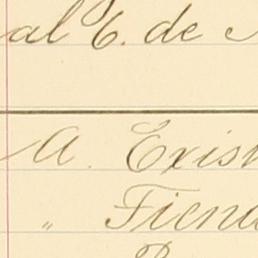 al 6. de
A. Exis
" Tiend